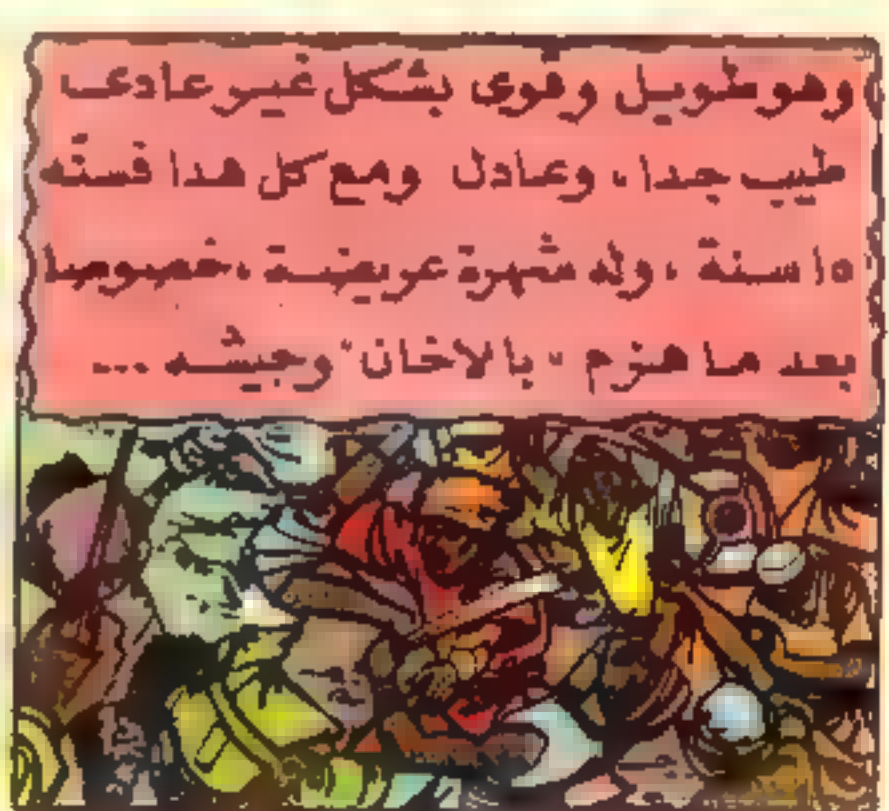 وهو طويل وقوى بشكل غير عادى
طيب جدا، وعادل ومع كل هدا فسنه
١٥ سنة ، وله شهرة عريضة ،خصوصا
بعد ما هزم "بالاخان" وجيشه ...